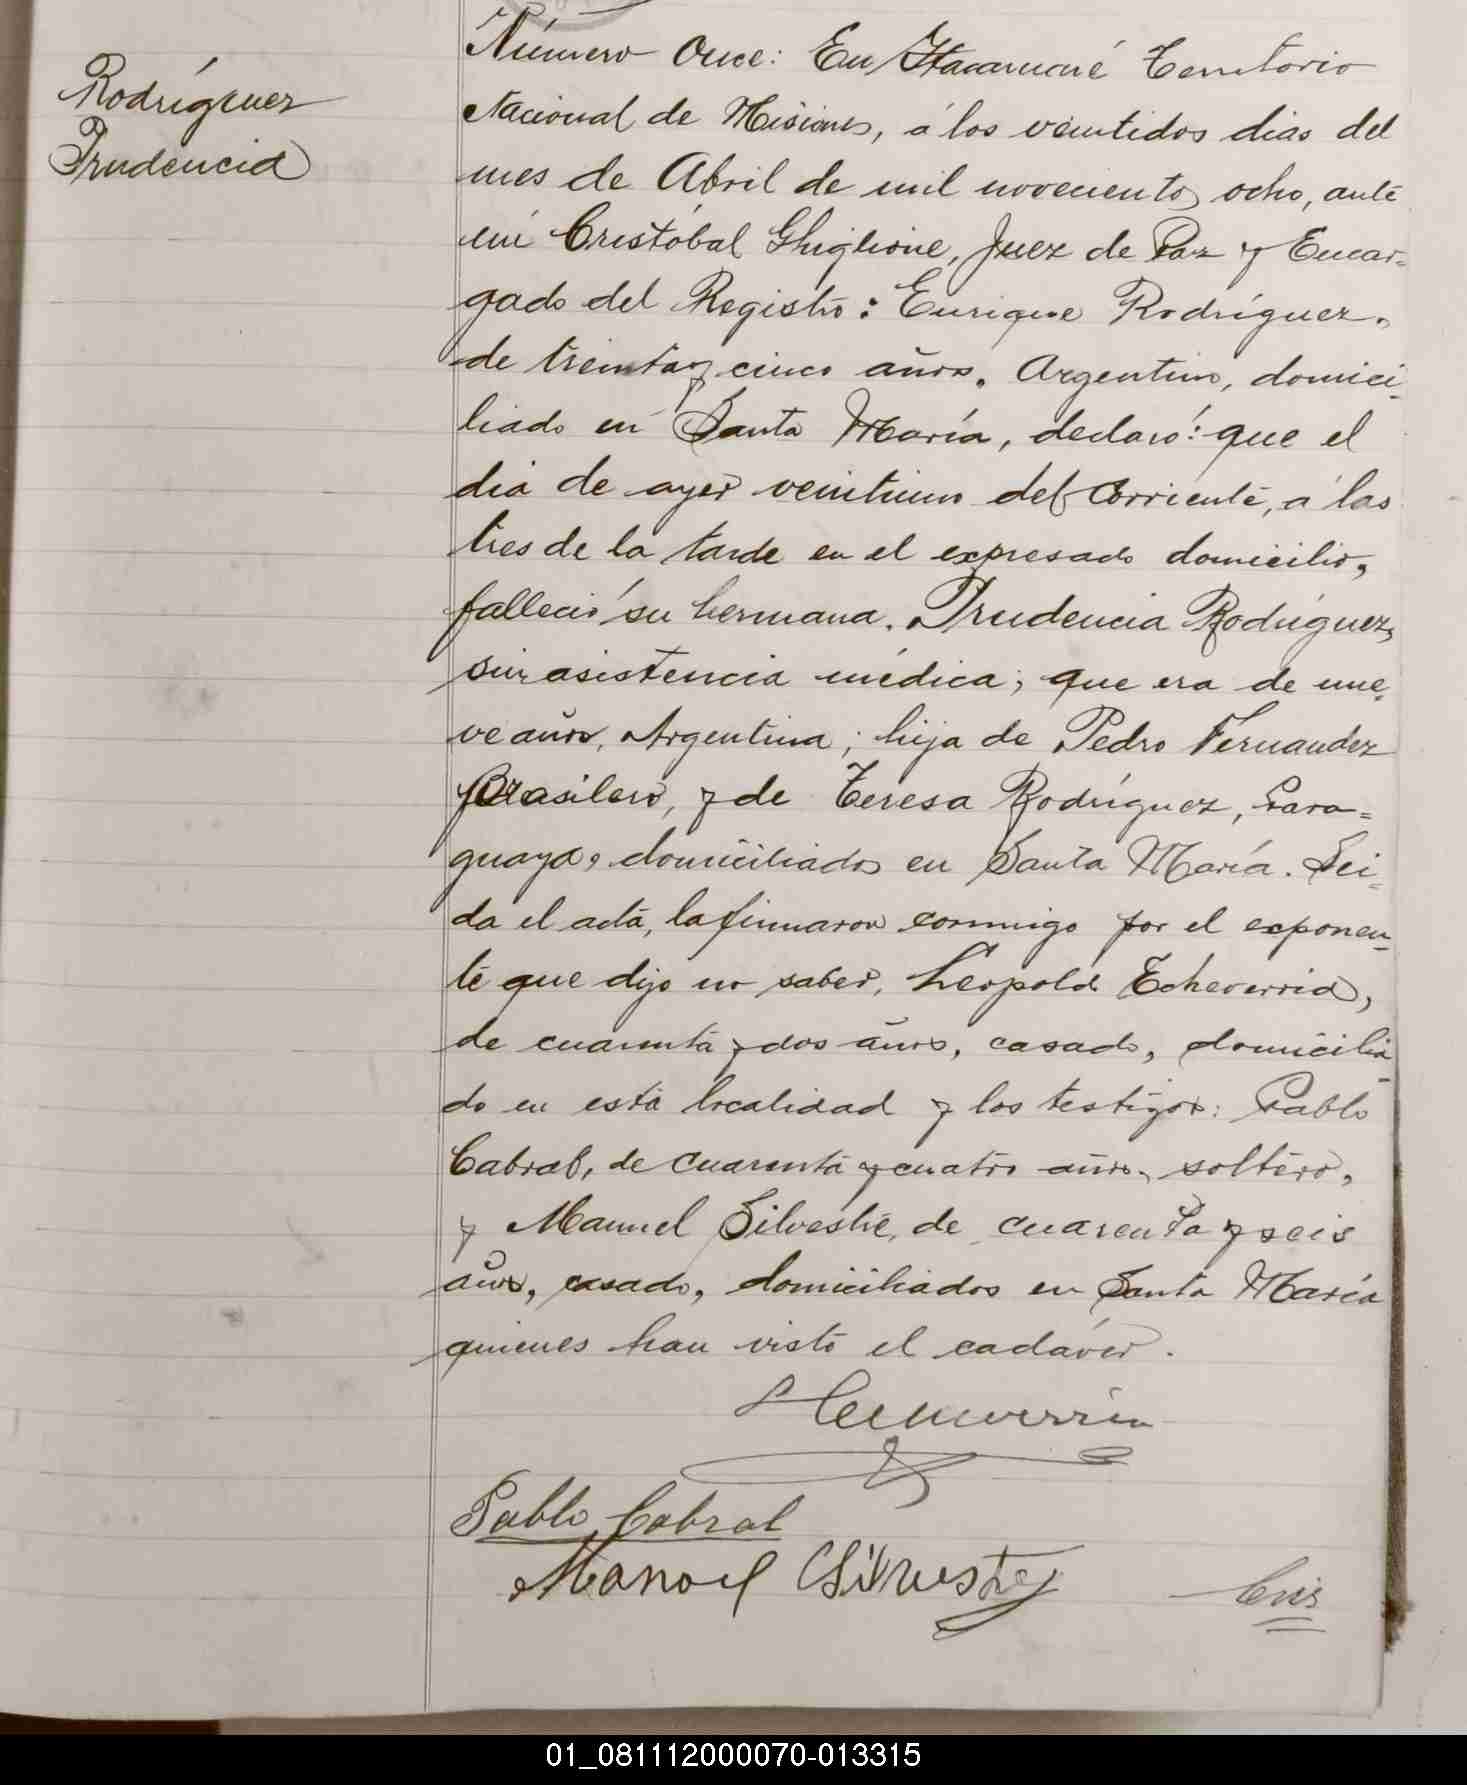 Rodríguez
Prudencia
Número Once: En Itacaruaré Territorio
Nacional de Misiones, á los veintidos dias del
mes de Abril de mil novecientos ocho, ante
mí Cristóbal Ghiglione, Juez de Paz y Encar=
gado del Registro: Enrique Rodríguez,
de treinta y cinco años, Argentino, domici-
liado en Santa María, declaró: que el
dia de ayer veintiuno del corriente, á las
tres de la tarde en el expresado domicilio,
falleció su hermana, Prudencia Rodríguez,
sin asistencia médica; que era de nue-
ve años, Argentina; hija de Pedro Fernandez
Brasilero, y de Teresa Rodríguez, Para=
guaya, domiciliados en Santa María. Lei-
da el acta, la firmaron conmigo por el exponen-
te que dijo no saber, Leopoldo Echeverria,
de cuarenta y dos años, casado, domicilia-
do en esta localidad y los testigos: Pablo
Cabral, de cuarenta y cuatro años, soltero,
y Manuel Silvestre, de cuarenta y seis
años, casado, domiciliados en Santa María
quienes han visto el cadáver.
Pablo Cabral
Manoel Silvestre
01_081112000070-013315